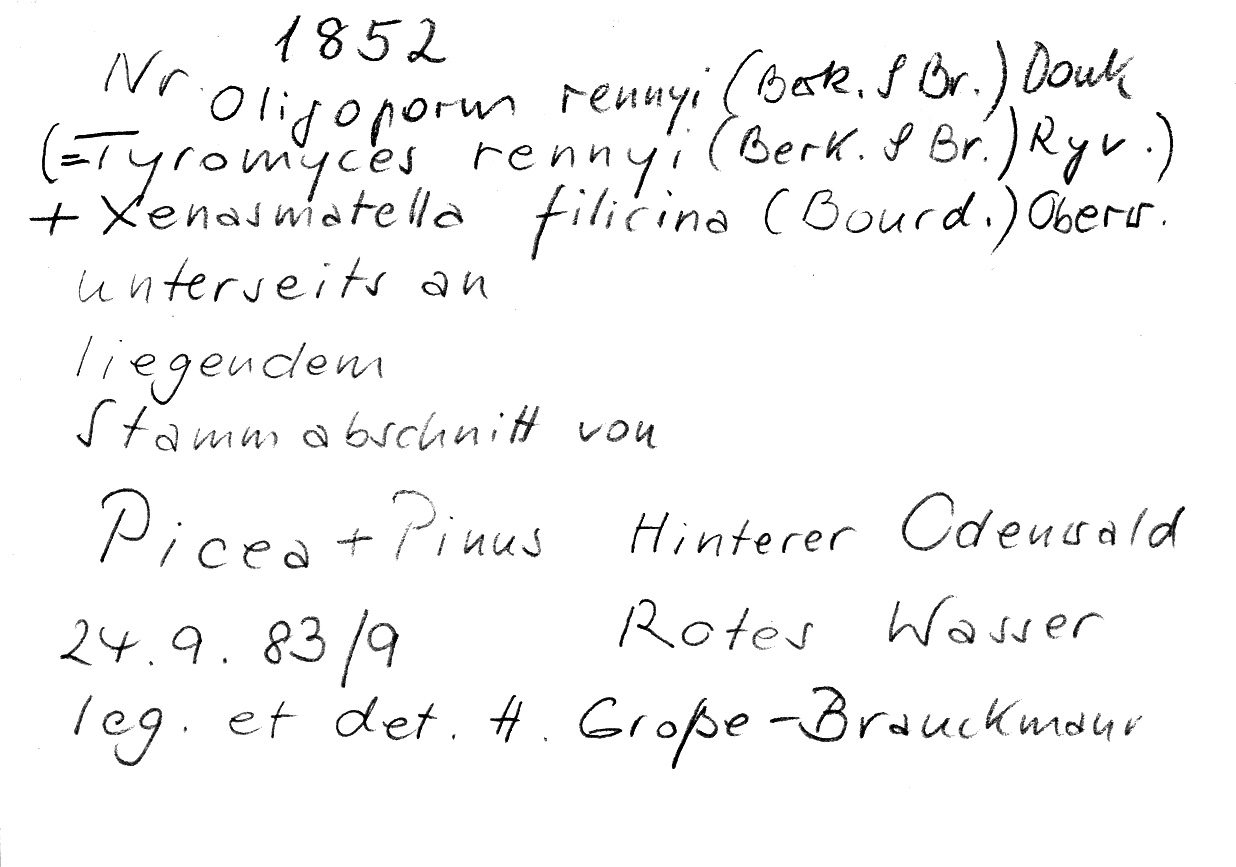 Nr. 1852
Oligoporus rennyi (Berk. & Br.) Donk
(= Tyromyces rennyi (Berk. & Br.) Ryv.)
+ Xenasmatella filicina (Bourd.) Oberw.
unterseits an
liegendem
Stammabschnitt von
Picea + Pinus Hinterer Odenwald
24.9.83/9 Rotes Wasser
leg. et det. H. Große-Brauckmann